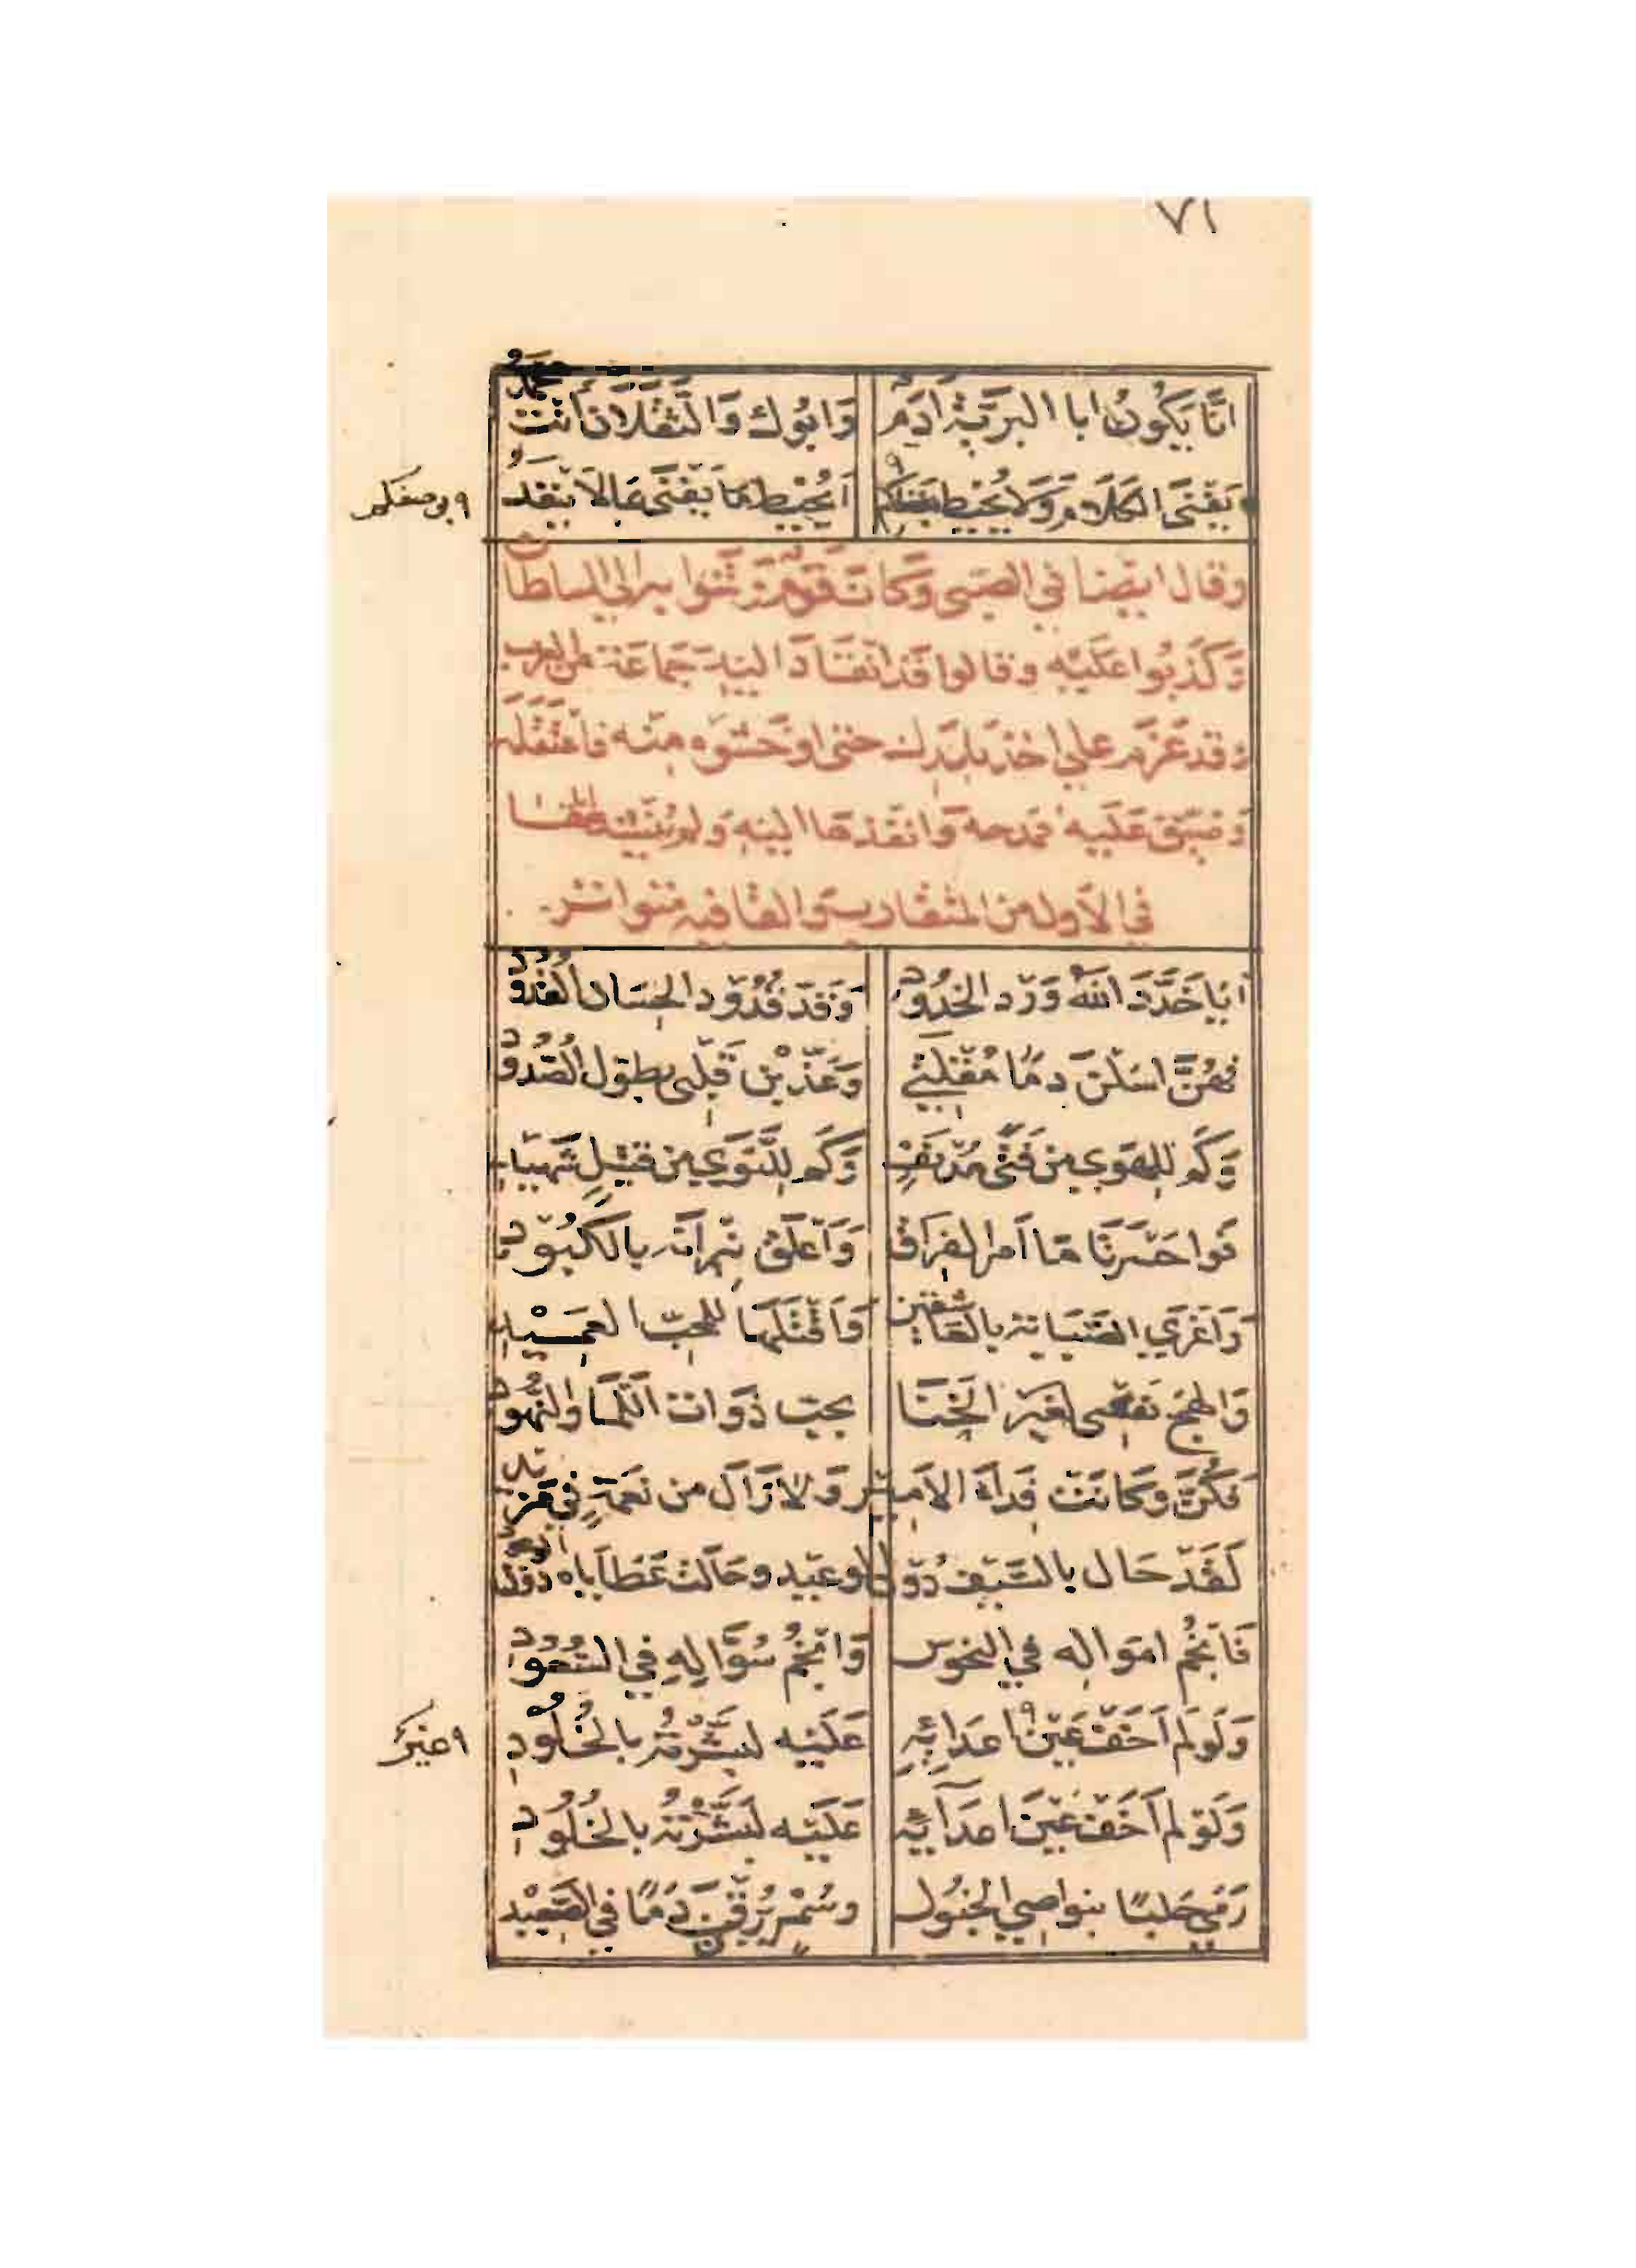 ٧١
انَّا يَكُونُ ابا البرَيَّةِ ادَم وَابُوك وَالثَّقَلَانِ أنْتَ محمَّدُ
يَفْنَى الكَلَامُ وَلَا يُحِيطُ بفضلكم أيُحِيط مَا يَفْنَى بمَا لَا يَنْفَدُ
وقال ايضا في الصبى وَكَانَ قَوْم وَشَوْا به الى السلطان
وَكَذَبُوا عَلَيْهِ وقالوا قَد انْقَادَ اليه جَمَاعَة من العرب
وقد عَزَمَ على اخذ بلدك حتى اوحَشُوه منه فاعْتَقَلَه
وَضيَّق عَلَيه فمدحه وَانفذها اليه وَلم يُنشِدهَا
في الأول من المتقارب وَالقافيه متواتر
ايَا خَدَّدَ اللهُ وَرْد الخدُودْ وَقَدَّ قُدُود الحِسَان القُدُودْ
فهُنَّ اسَلْنَ دمًا مُقْلَتِي وَعَذّبْن قَلْبي بطُول الصُّدُودْ
وَكَم للهَوى من فَتًى مُدْنَفٍ وَكَم لِلنَّوَى مِن قتيلٍ شَهيد
فَوا حَسْرَتَا مَا أمرَّ الفِرَاق وَأعْلَقَ نِيرَانَه بالكُبُود
وَاغْرَى الصَّبَابَة بالعَاشقين وَاَقْتَلَهَا للمحبّ العَمِيد
وَالهج نَفْسى لغير الخَنَا بحبّ ذَوات اللَّمَا وَالنُّهُود
فكَنَّ وكَانَتْ فِدَاءَ الأمير وَلَا زَالَ من نعمَةٍ في مَزيد
لقَدْ حَال بالسَّيف دُونَ الوعيد وحَالت عَطَاياه دُونَ الوعود
فَأنجُم اموَاله في النحوس وَانجُم سُؤّالِهِ في السُّعُود
وَلَو لَم أخَف عَيْن اعدَائِهِ عَلَيْه لبَشَّرْتُه بالخُلُود
٩ غير
وَلَو لم أخَف عَيْنَ اعدَائِه عَلَيْه لبَشَّرْتُه بالخُلُود
رَمَى حَلبًا بنواصي الخيُول وسُمْرٍ يُرِقْنَ دَمًا في الصَّعِيد